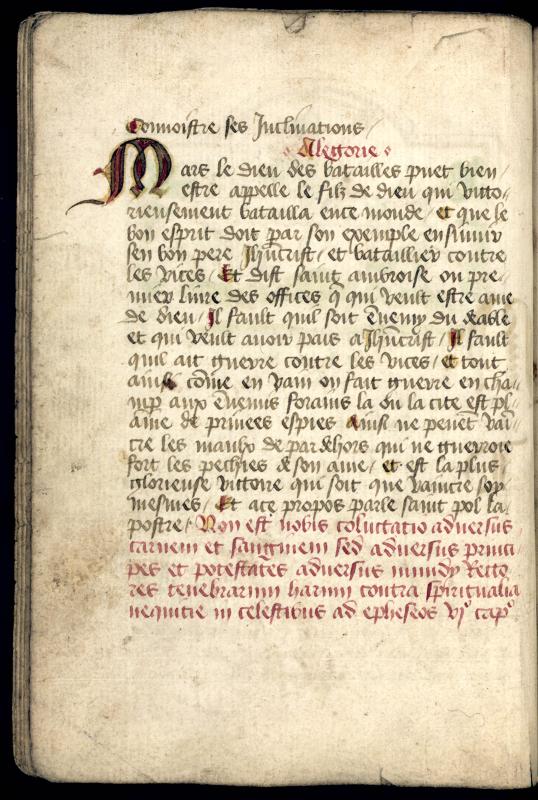 Connoistre ses Inclinations /
Alegorie
Mars le dieu des batailles puet bien
estre appelle le filz de dieu qui victo-
rieusement batailla ence monde / et que le
bon esprit doit par son exemple ensuiuir
sen bon pere Jhucrist / et bataillier contre
les vices / Et dist saint ambroise ou pre-
mier liure des offices q̄ qui veult estre ame
de dieu / Jl fault quil soit ēnemy du deable
et qui veult auoir paix a Jhucrist / Jl fault
quil ait guerre contre les vices / et tout
ainsi cōme en vain on fait guerre en cha-
mp aux ēnemis forains la ou la cite est pl-
aine de priuees espies Ainsi ne peuēt vai-
cre les maulx de par dehors qui ne guerroie
fort les pechies de son ame / et est la plus
glorieuse victoire qui soit que vaincre soy
mesmes / Et ace propos parle saint pol la-
postre / Non est nobis coluctatio aduersus
carnem et sanguinem sed aduersus princi-
pes et potestates aduersus mundy Recto
res tenebrarum harum contra spiritualia
nequitie in celestibus ad epheseos vj° cap°